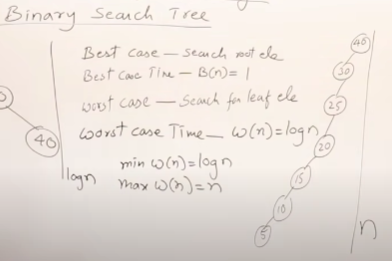 Binary Search Tree
Best case — Search root ele
Best case Time — B(n) = 1
worst case — Search for leaf ele
worst case Time — w(n) = logn
min w(n) = logn
max w(n) = n
logn
40
40
30
25
20
15
10
5
n